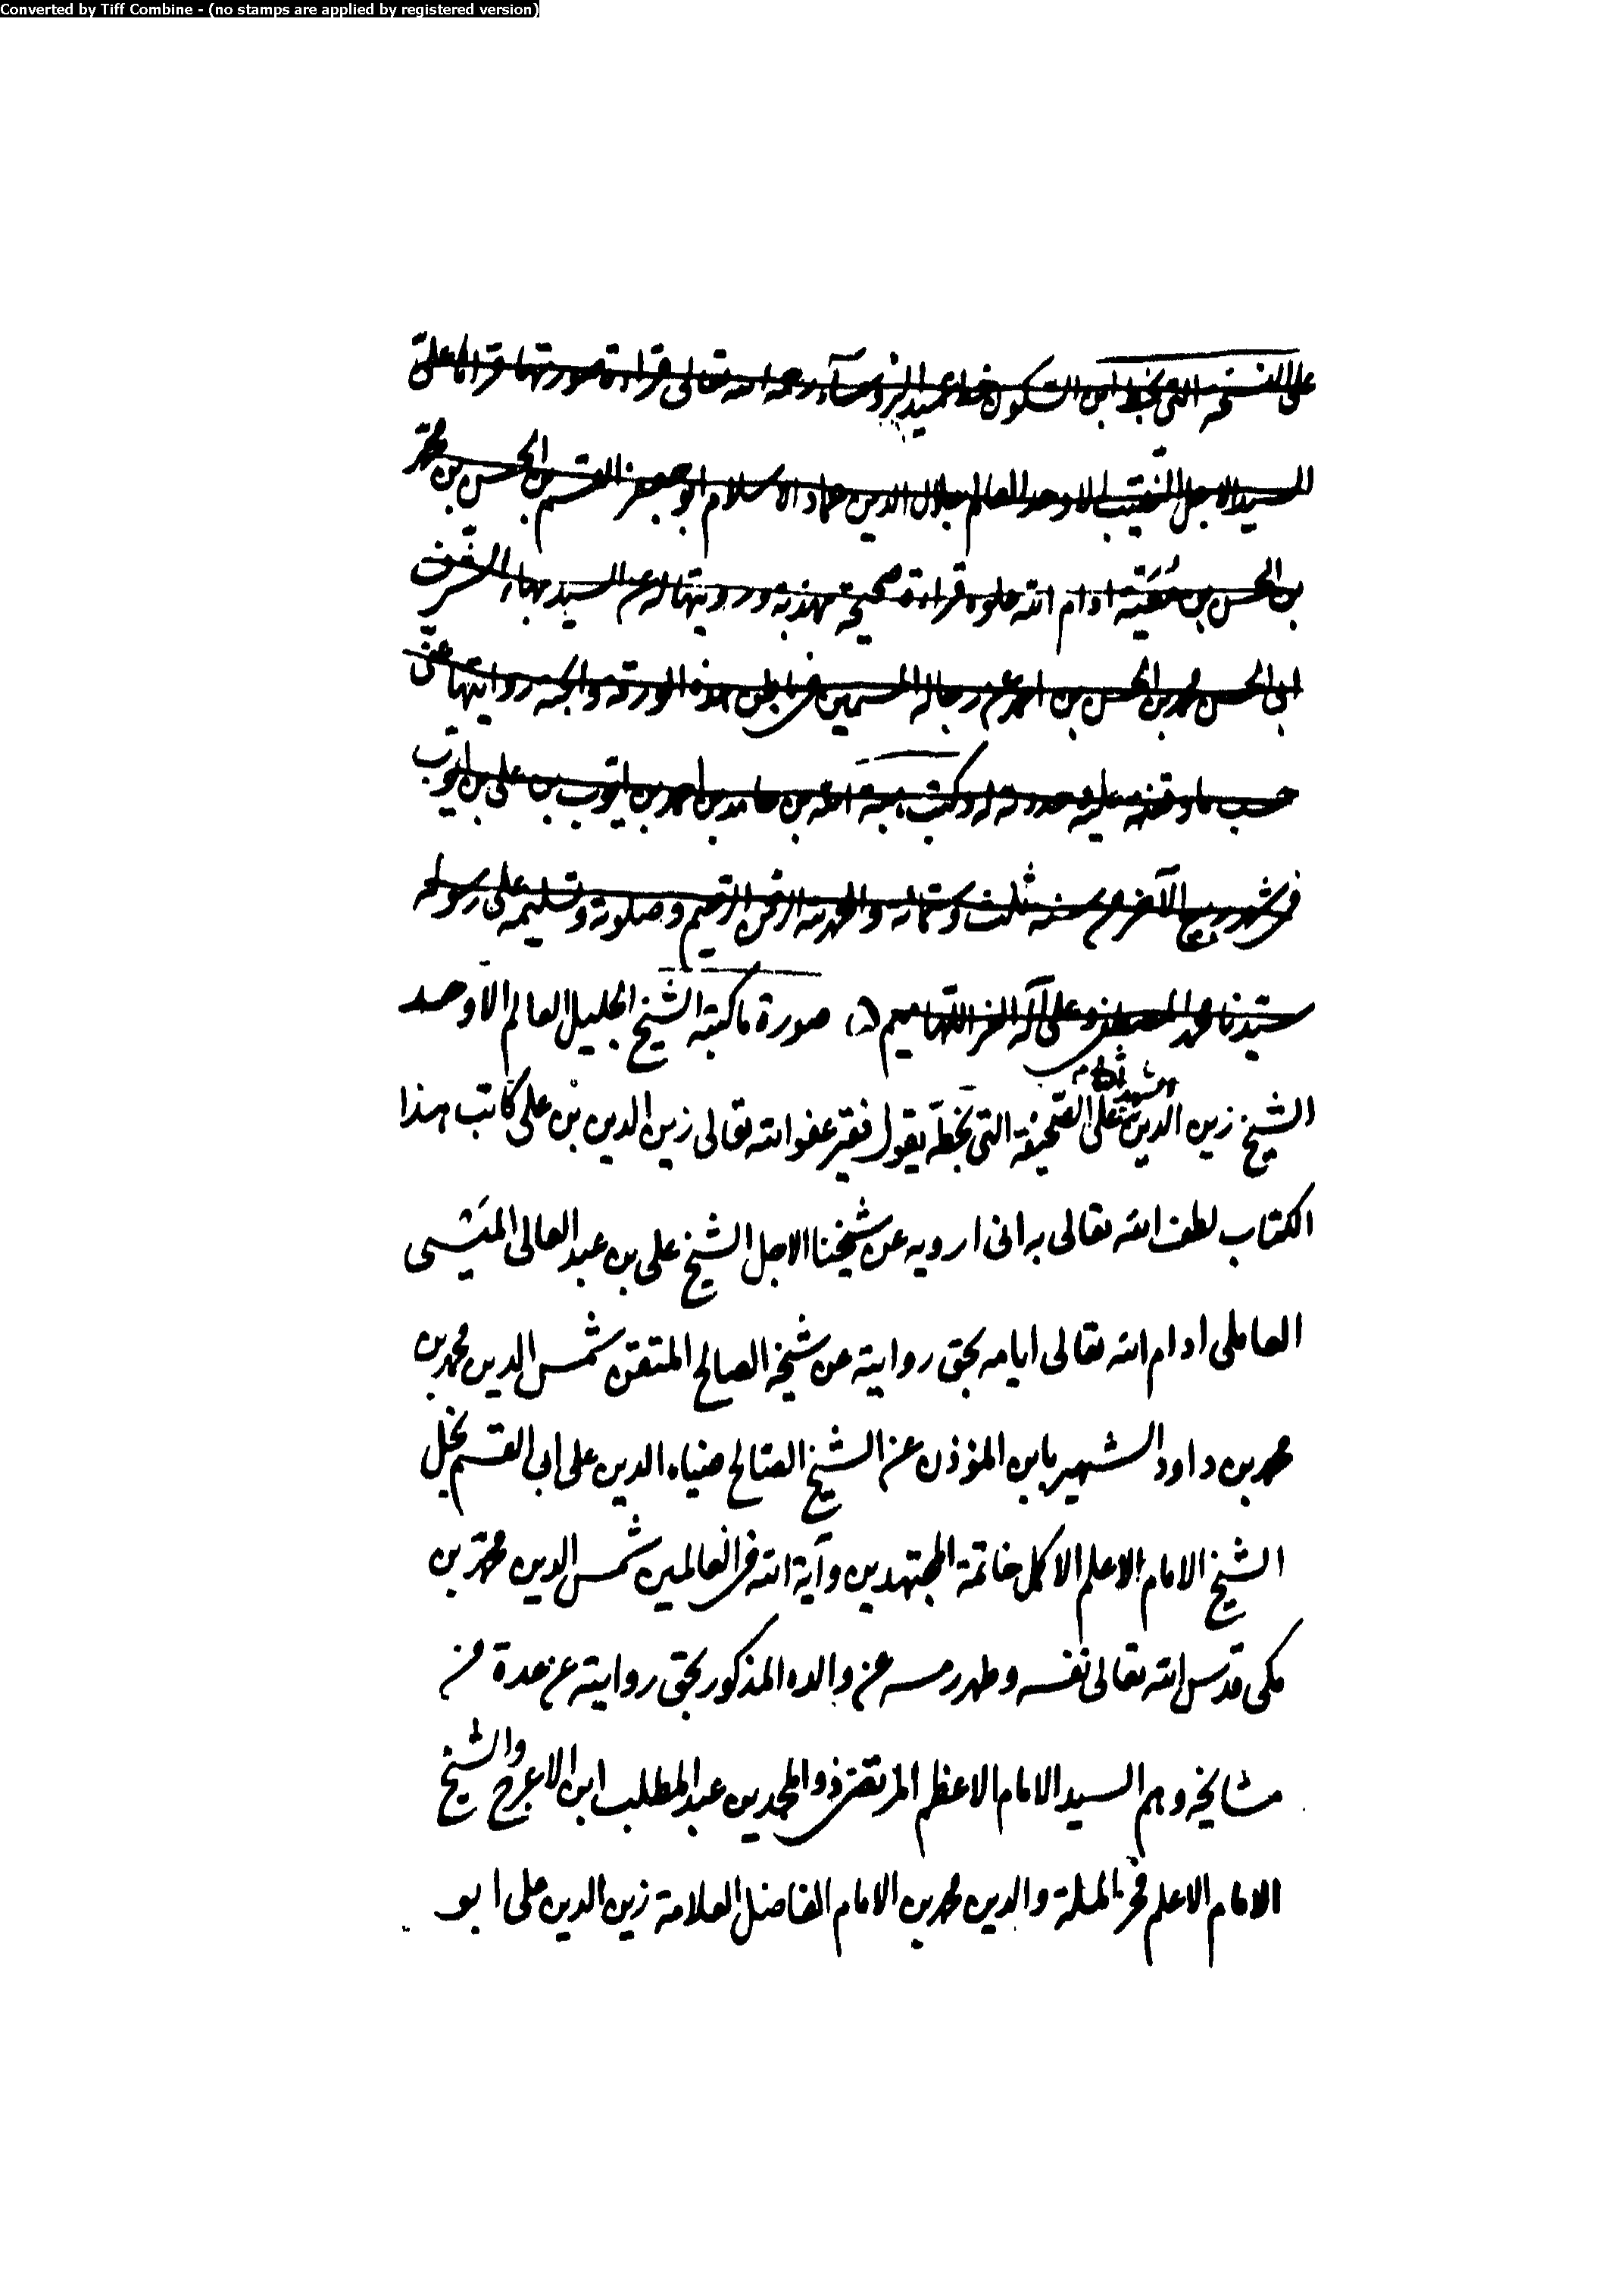 Converted by Tiff Combine - (no stamps are applied by registered version)
على النسخة التى بخط ابن السكون خط عميد الرؤساء رحمه الله تعالى قراءة صورتها قراها على
السيد الاجل النقيب الاوحد العالم جلال الدين عماد الاسلام ابو جعفر القسم بن الحسن بن محمد
بن الحسن بن معية ادام الله علوه قراءة صحيحة مهذبة ورويتها له عن السيد بهاء الشرف
ابى الحسن محمد بن الحسن بن احمد عن رجاله المسمين فى باطن هذه الورقة وابحته روايتها عنى
حسب ما وقفته عليه وحددته له وكتب هبة الله بن حامد بن احمد بن ايوب بن على بن ايوب
فى شهر ربيع الآخر من سنة ثلث وستمائة والحمد لله الرحمن الرحيم وصلوته وتسليمه على رسوله
سيدنا محمد المصطفى وعلى آله الغر اللهاميم صورة ما كتبه الشيخ الجليل العالم الاوحد
الشيخ زين الدين الشهيد الثانى على الصحيفة التى بخطه يقول فقير عفو الله تعالى زين الدين بن على كاتب هذا
الكتاب لطف الله تعالى به انى ارويه عن شيخنا الاجل الشيخ على بن عبد العالى الميسى
العاملى ادام الله تعالى ايامه بحق روايته عن شيخه الصالح المتقن شمس الدين محمد بن
محمد بن داود الشهير بابن المؤذن عن الشيخ الصالح ضياء الدين على ابى القسم نجل
الشيخ الامام الاعلم الاكمل خاتمة المجتهدين وآية الله فى العالمين شمس الدين محمد بن
مكى قدس الله تعالى نفسه وطهر رمسه عن والده المذكور بحق روايته عن عدة من
مشايخه وهم السيد الامام الاعظم المرتضى ذو المجدين عبد المطلب ابن الاعرج والشيخ
الامام الاعلم فخر الملة والدين محمد بن الامام الفاضل العلامة زين الدين على ابو